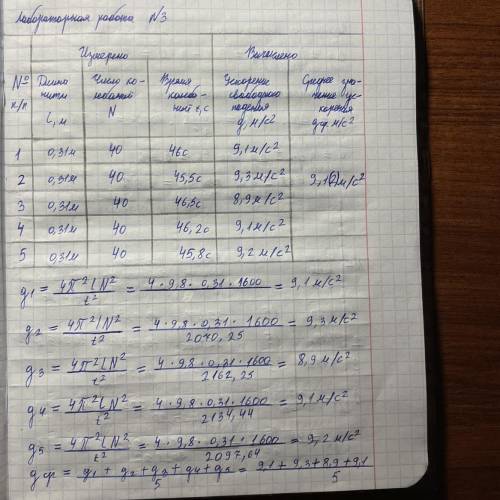 Лабораторная работа №3
Измерено Вычислено
№ п/п Длина нити l, м Число колебаний N Время колебаний t, с Ускорение свободного падения g, м/с² Среднее значение ускорения gср. м/с²
1 0,31м 40 46с 9,1м/с²
2 0,31м 40 45,5с 9,3м/с² 9,12м/с²
3 0,31м 40 46,5с 8,9м/с²
4 0,31м 40 46,2с 9,1м/с²
5 0,31м 40 45,8с 9,2м/с²
g₁ = 4π²lN²/t² = 4·9,8·0,31·1600/ = 9,1м/с²
g₂ = 4π²lN²/t² = 4·9,8·0,31·1600/2070,25 = 9,3м/с²
g₃ = 4π²lN²/t² = 4·9,8·0,31·1600/2162,25 = 8,9м/с²
g₄ = 4π²lN²/t² = 4·9,8·0,31·1600/2134,44 = 9,1м/с²
g₅ = 4π²lN²/t² = 4·9,8·0,31·1600/2097,64 = 9,2м/с²
gср = g₁ + g₂ + g₃ + g₄ + g₅/5 = 9,1 + 9,3 + 8,9 + 9,1/5